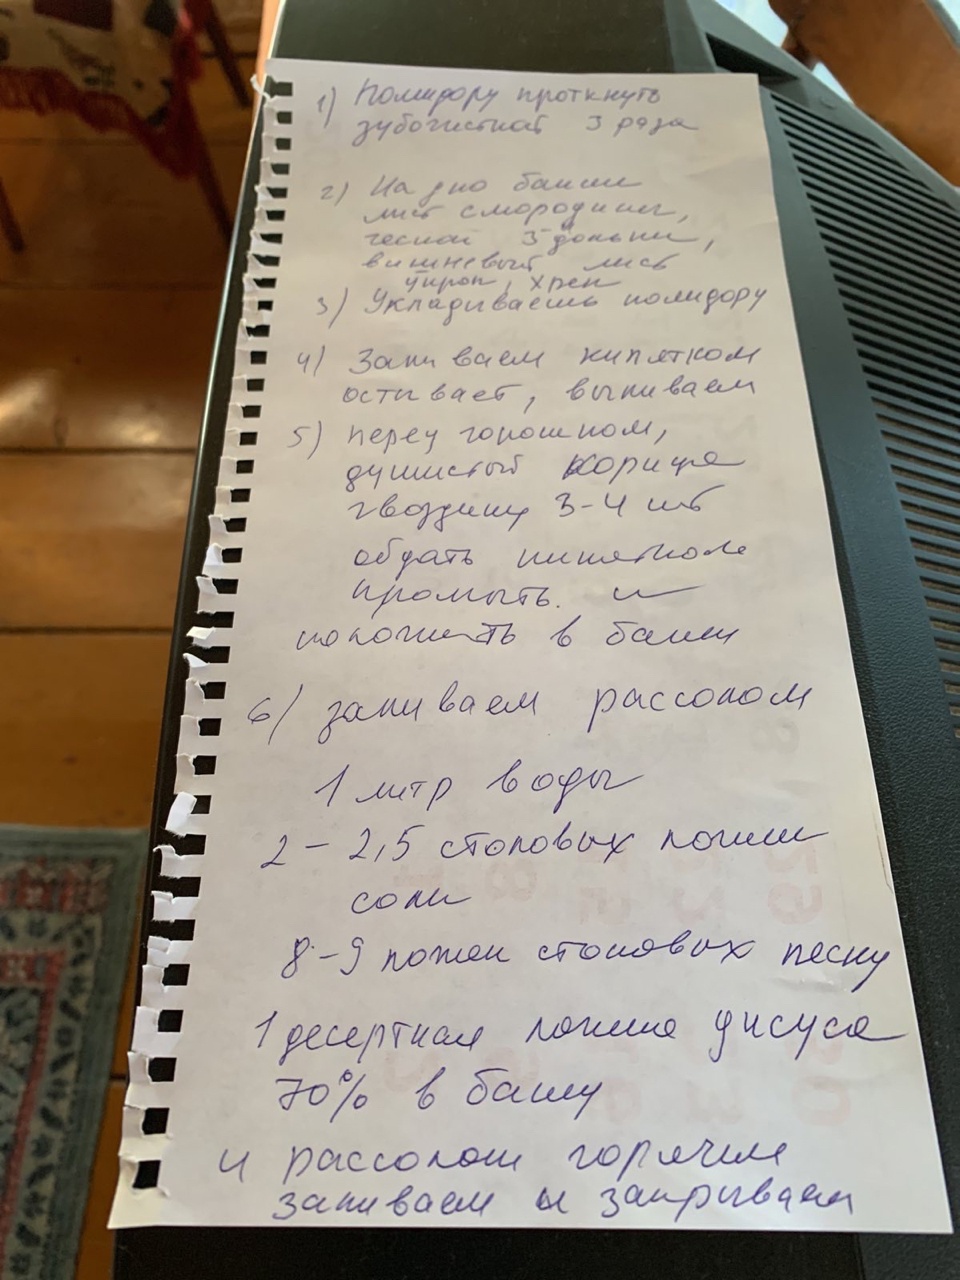 1) Помидору проткнуть
зубочисткой 3 раза
2) На дно банки
лист смородины,
чеснок 3 дольки,
вишневый лист
укроп, хрен
3) Укладываешь помидору
4) Заливаем кипятком
остывает, выливаем
5) перец горошком,
душистый корица
гвоздику 3-4 шт
обдать кипятком
промыть. и
положить в банки
6) заливаем рассолом
1 литр воды
2 - 2,5 столовых ложки
соли
8-9 ложек столовых песку
1 десертная ложка уксуса
70% в банку
и рассолом горячим
заливаем и закрываем